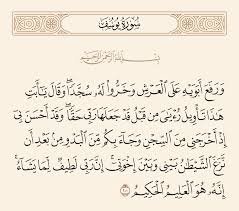 سورة يوسف
بسم الله الرحمن الرحيم
وَرَفَعَ أَبَوَيْهِ عَلَى الْعَرْشِ وَخَرُّوا لَهُ سُجَّدًا وَقَالَ يَا أَبَتِ
هَذَا تَأْوِيلُ رُءْيَايَ مِن قَبْلُ قَدْ جَعَلَهَا رَبِّي حَقًّا وَقَدْ أَحْسَنَ بِي
إِذْ أَخْرَجَنِي مِنَ السِّجْنِ وَجَاءَ بِكُم مِّنَ الْبَدْوِ مِن بَعْدِ أَن
نَّزَغَ الشَّيْطَانُ بَيْنِي وَبَيْنَ إِخْوَتِي إِنَّ رَبِّي لَطِيفٌ لِّمَا يَشَاءُ
إِنَّهُ هُوَ الْعَلِيمُ الْحَكِيمُ ١٠٠